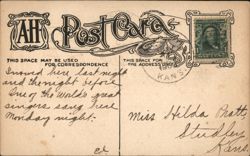 AH
Post Card
THIS SPACE MAY BE USED
FOR CORRESPONDENCE
THIS SPACE FOR
THE ADDRESS ONLY
KANS.
Snowed here last night
and the night before.
One of the World's great
singers sang here
Monday night.
Miss Hilda Pratt,
Studley
Kans